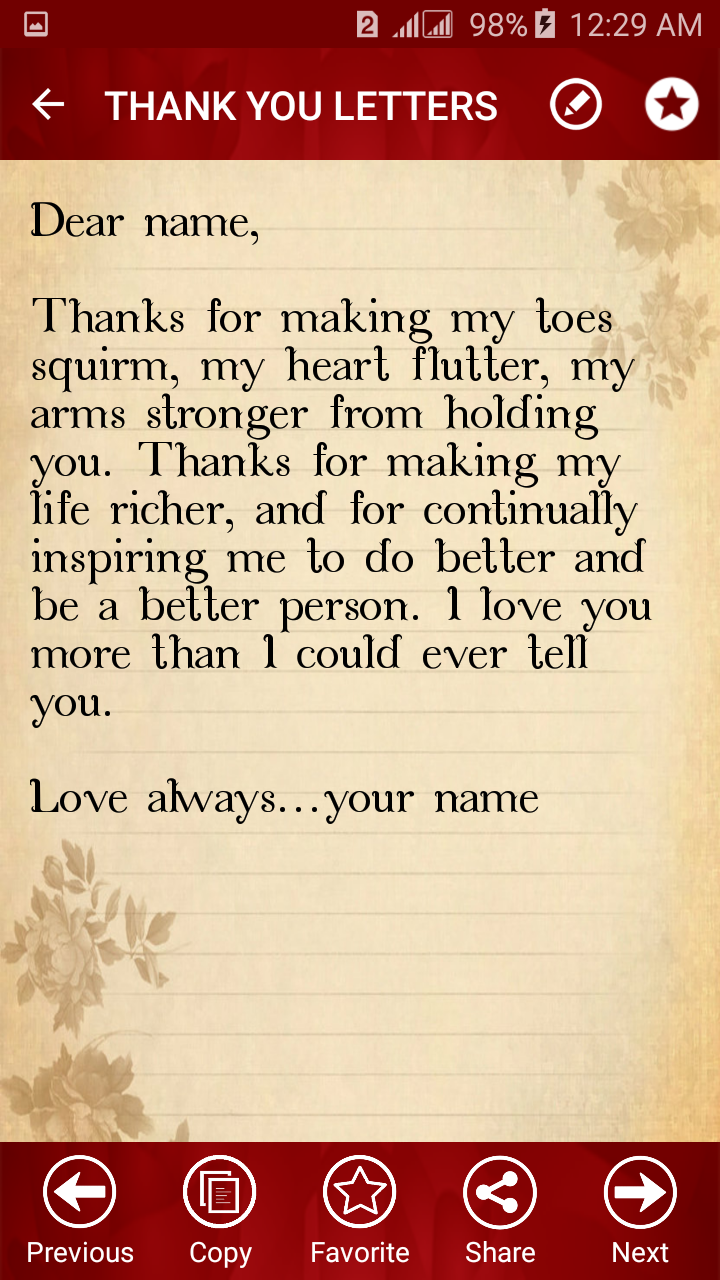 2 98% 12:29 AM
THANK YOU LETTERS
Dear name,
Thanks for making my toes
squirm, my heart flutter, my
arms stronger from holding
you. Thanks for making my
life richer, and for continually
inspiring me to do better and
be a better person. I love you
more than I could ever tell
you.
Love always...your name
Previous Copy Favorite Share Next